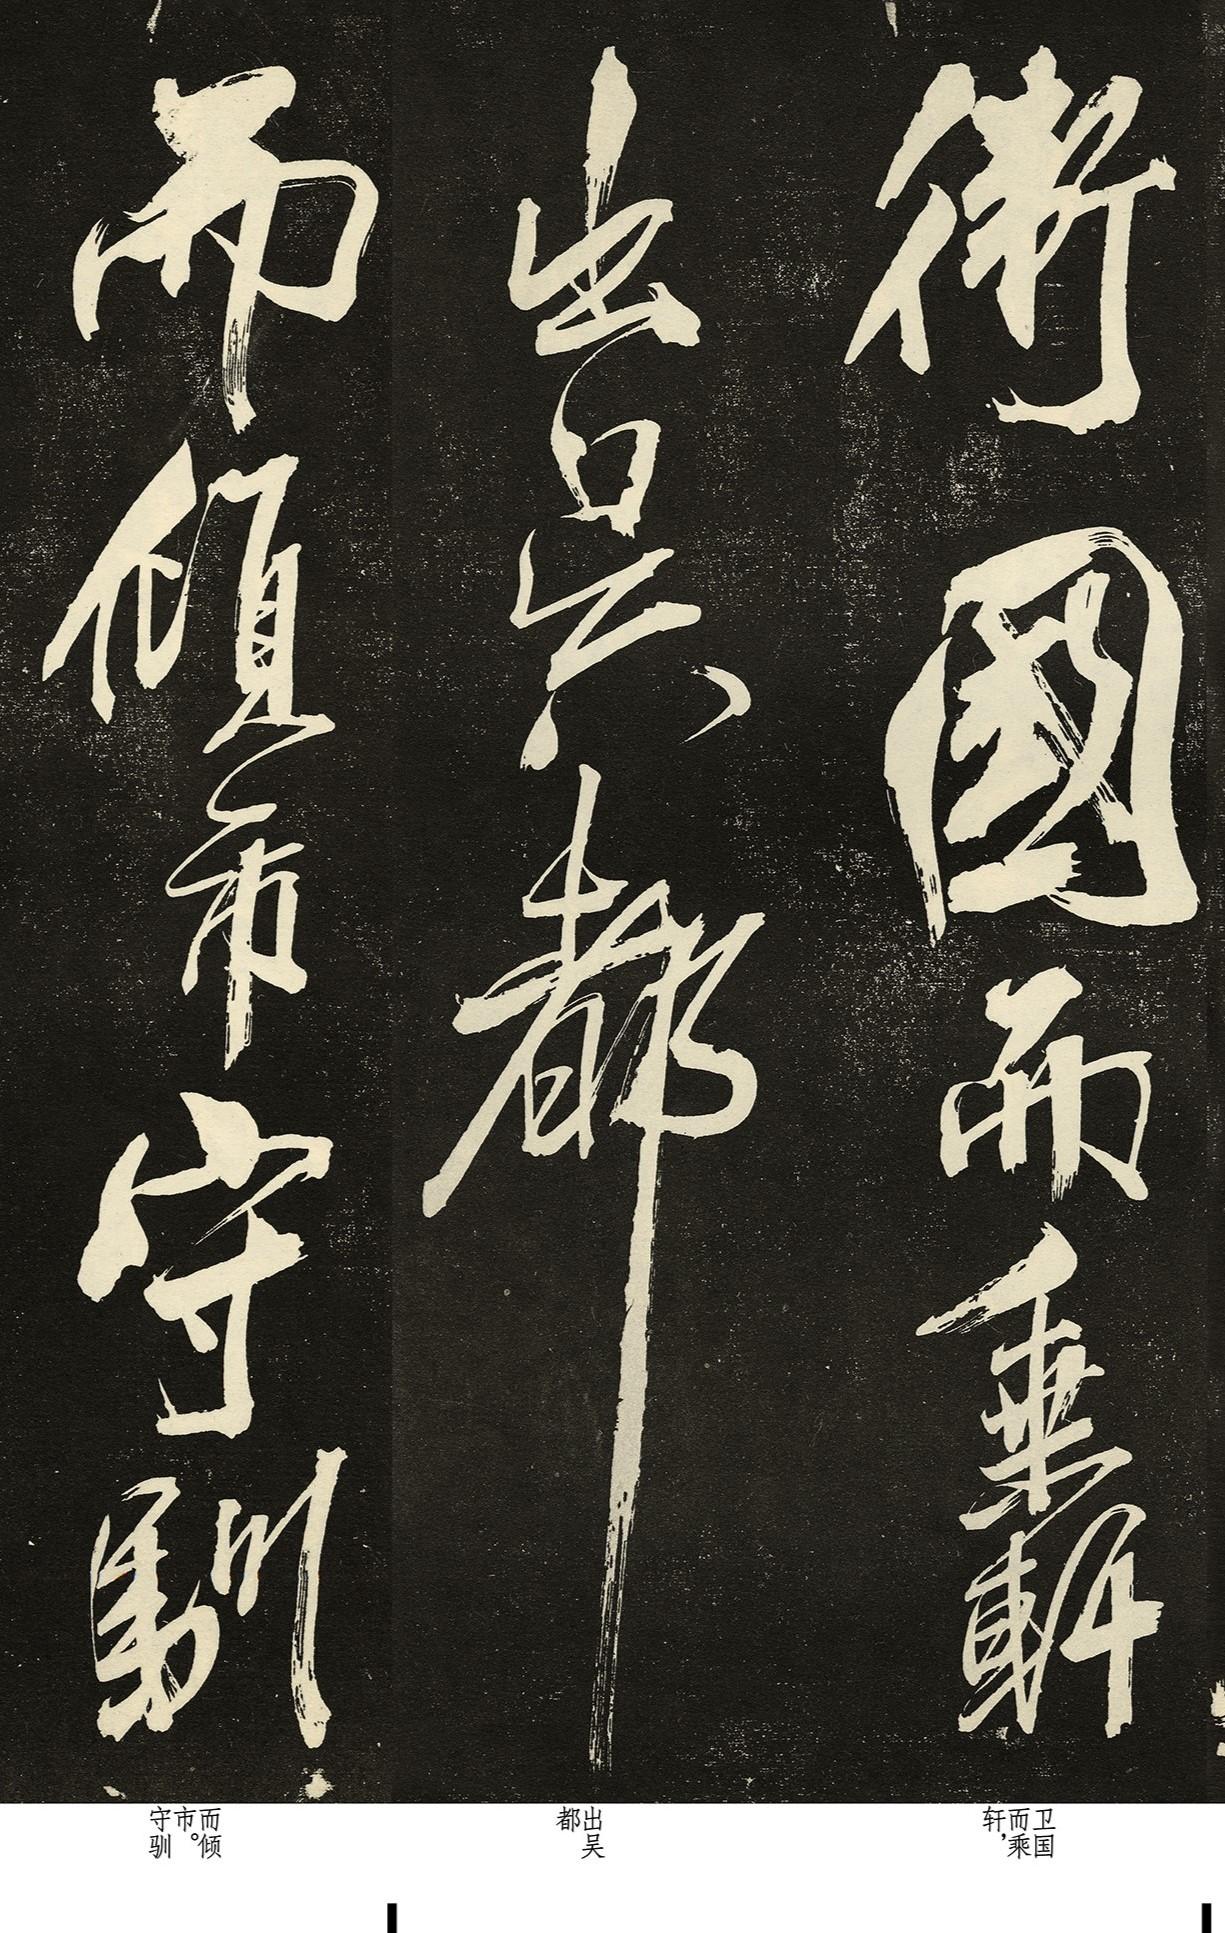 衛國而乗軒
出吳都
而傾市守馴
卫国
而乘
轩，
出吴
都
而倾
市。
守驯